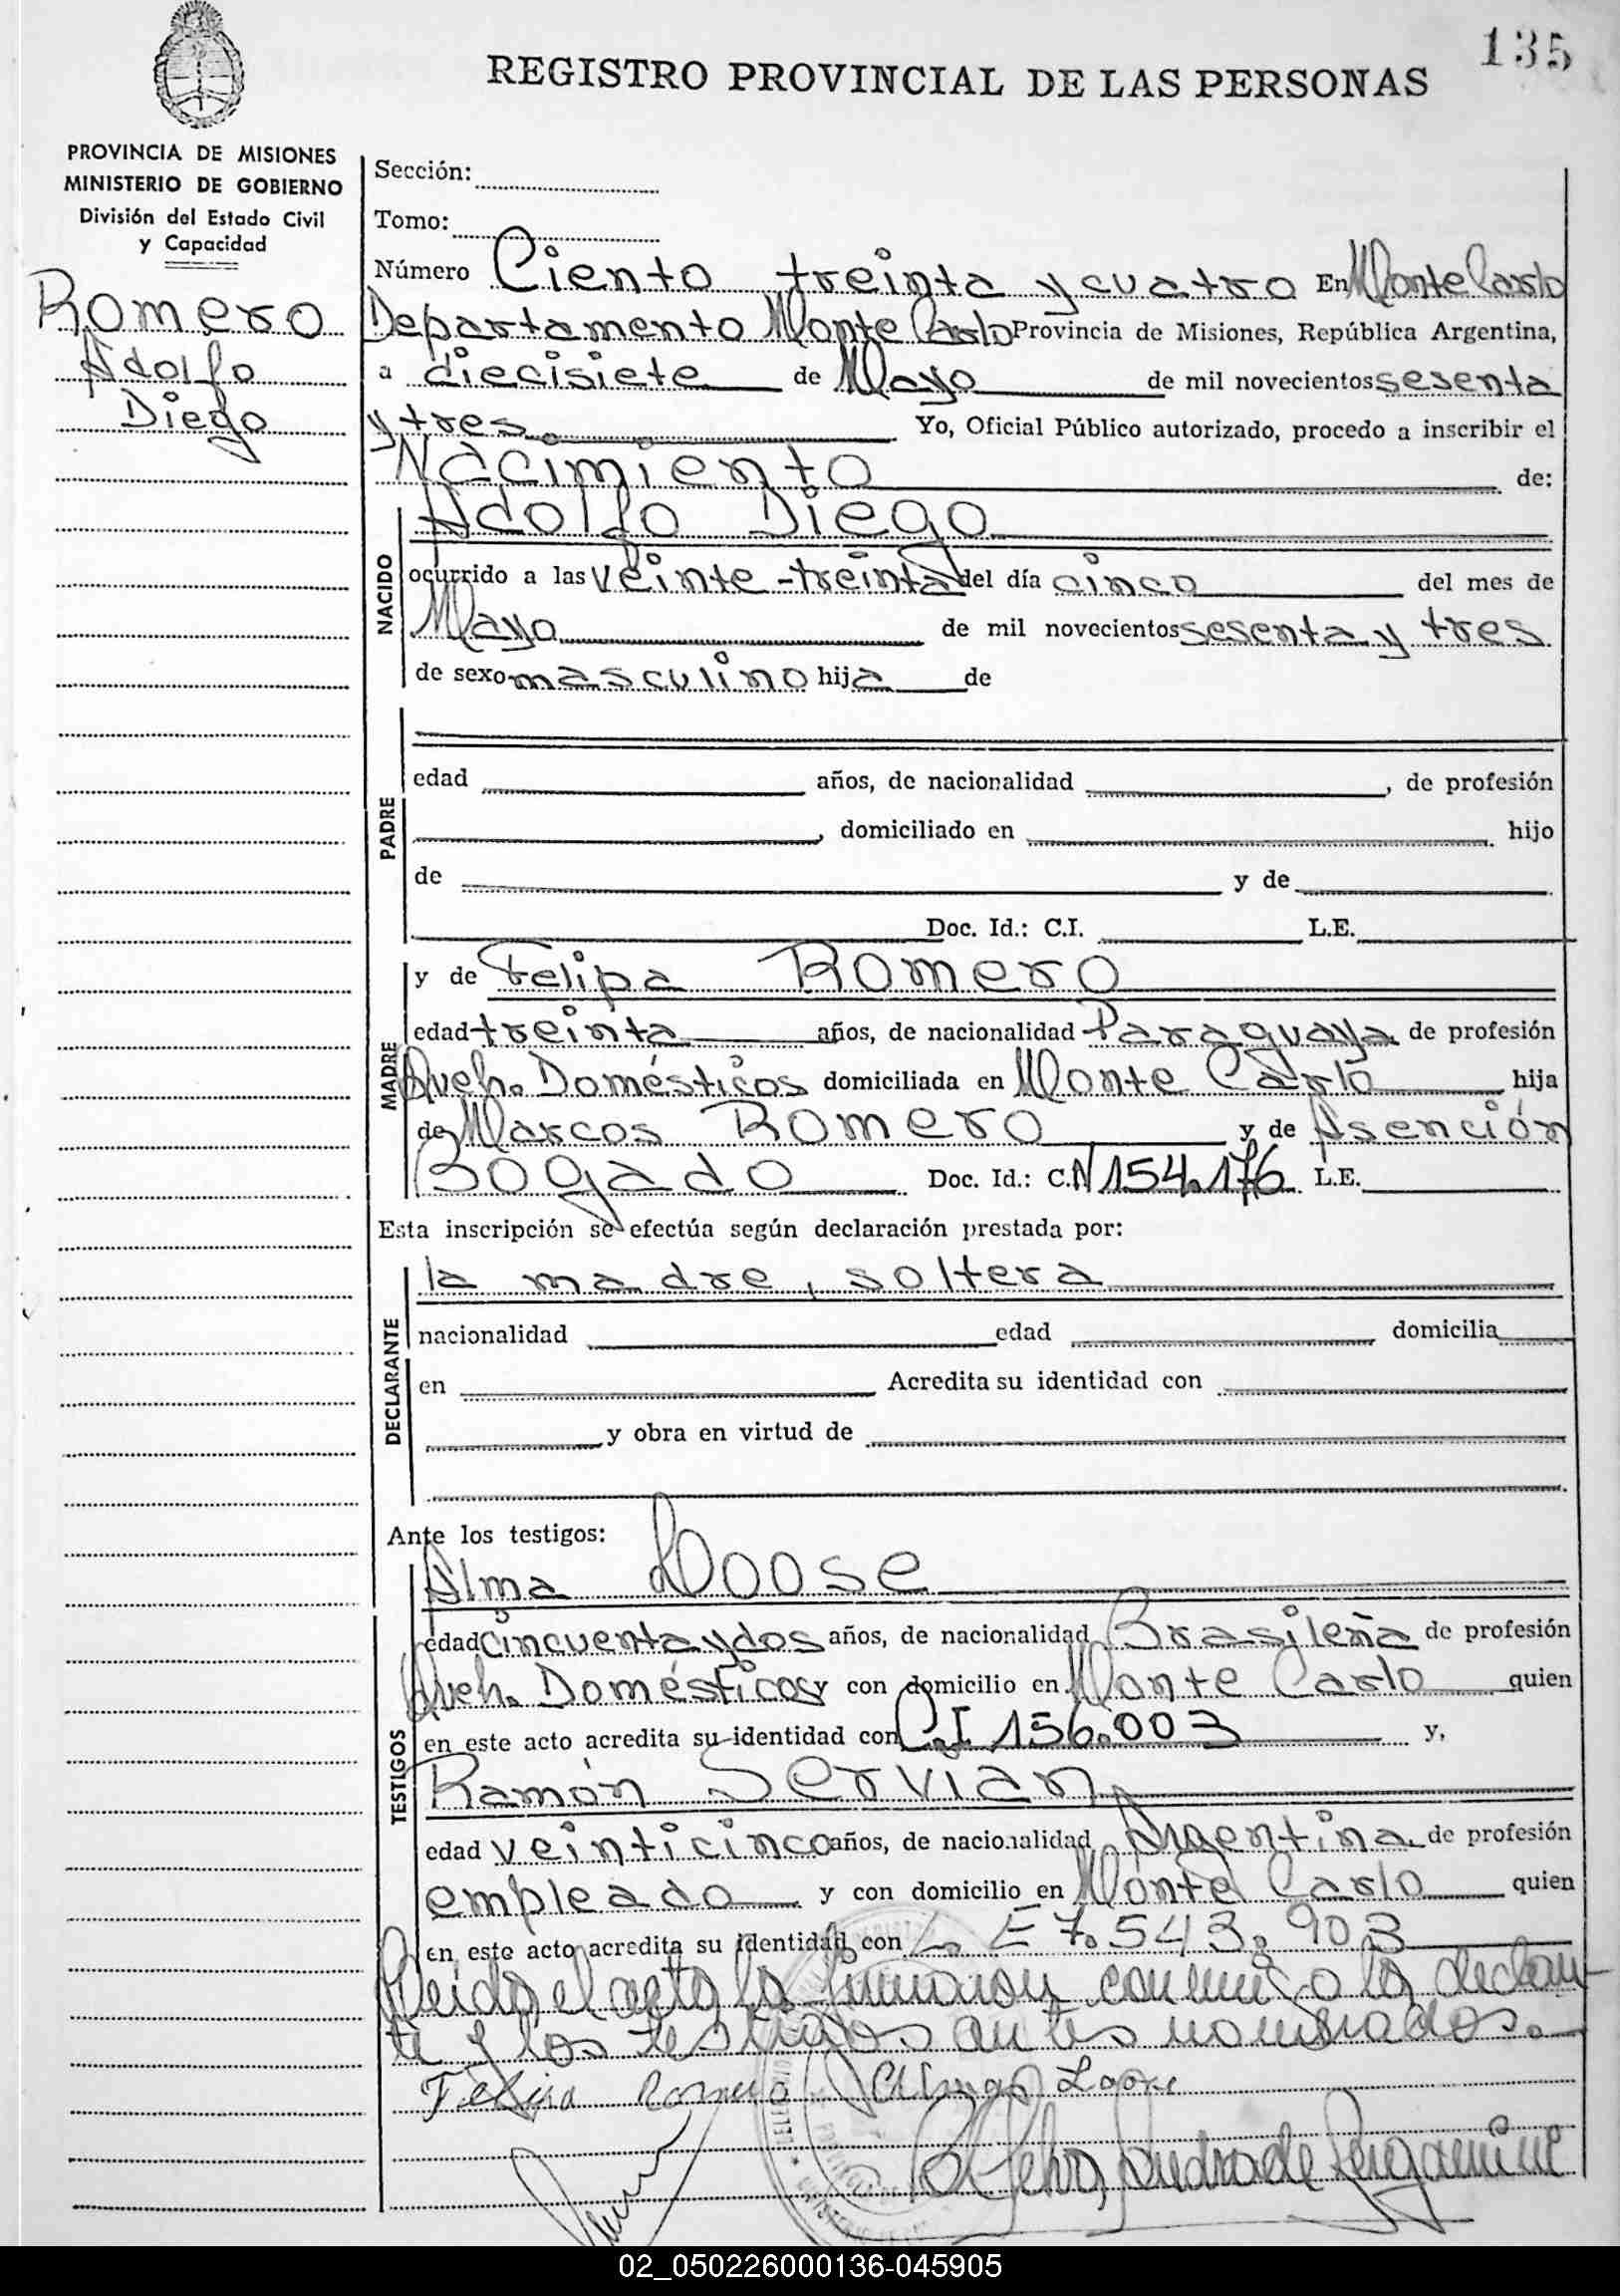 135
REGISTRO PROVINCIAL DE LAS PERSONAS
PROVINCIA DE MISIONES
MINISTERIO DE GOBIERNO
División del Estado Civil
y Capacidad
Romero
Adolfo
Diego
Sección:
Tomo:
Número Ciento treinta y cuatro En Monte Carlo
Departamento Monte Carlo Provincia de Misiones, República Argentina,
a diecisiete de Mayo de mil novecientos sesenta
y tres. Yo, Oficial Público autorizado, procedo a inscribir el
Nacimiento de:
NACIDO
Adolfo Diego
ocurrido a las veinte-treinta del día cinco del mes de
Mayo de mil novecientos sesenta y tres
de sexo masculino hija de
PADRE
edad años, de nacionalidad , de profesión
, domiciliado en hijo
de y de
Doc. Id.: C.I. L.E.
MADRE
y de Felipa Romero
edad treinta años, de nacionalidad Paraguaya de profesión
Queh. Domésticos domiciliada en Monte Carlo hija
de Marcos Romero y de Asención
Bogado Doc. Id.: C.I 154.176 L.E.
Esta inscripción se efectúa según declaración prestada por:
DECLARANTE
la madre, soltera
nacionalidad edad domicilia
en Acredita su identidad con
y obra en virtud de
Ante los testigos:
TESTIGOS
Alma Loose
edad cincuenta y dos años, de nacionalidad Brasileña de profesión
Queh. Domésticos y con domicilio en Monte Carlo quien
en este acto acredita su identidad con C.I 156.003 y,
Ramón Servian,
edad veinticinco años, de nacionalidad Argentina de profesión
empleado y con domicilio en Monte Carlo quien
en este acto acredita su identidad con L. E 7.543.903
Leida el acta la firmaron conmigo la declaran-
te y los testigos antes nombrados.
Felipa Romero Loose
02_050226000136-045905